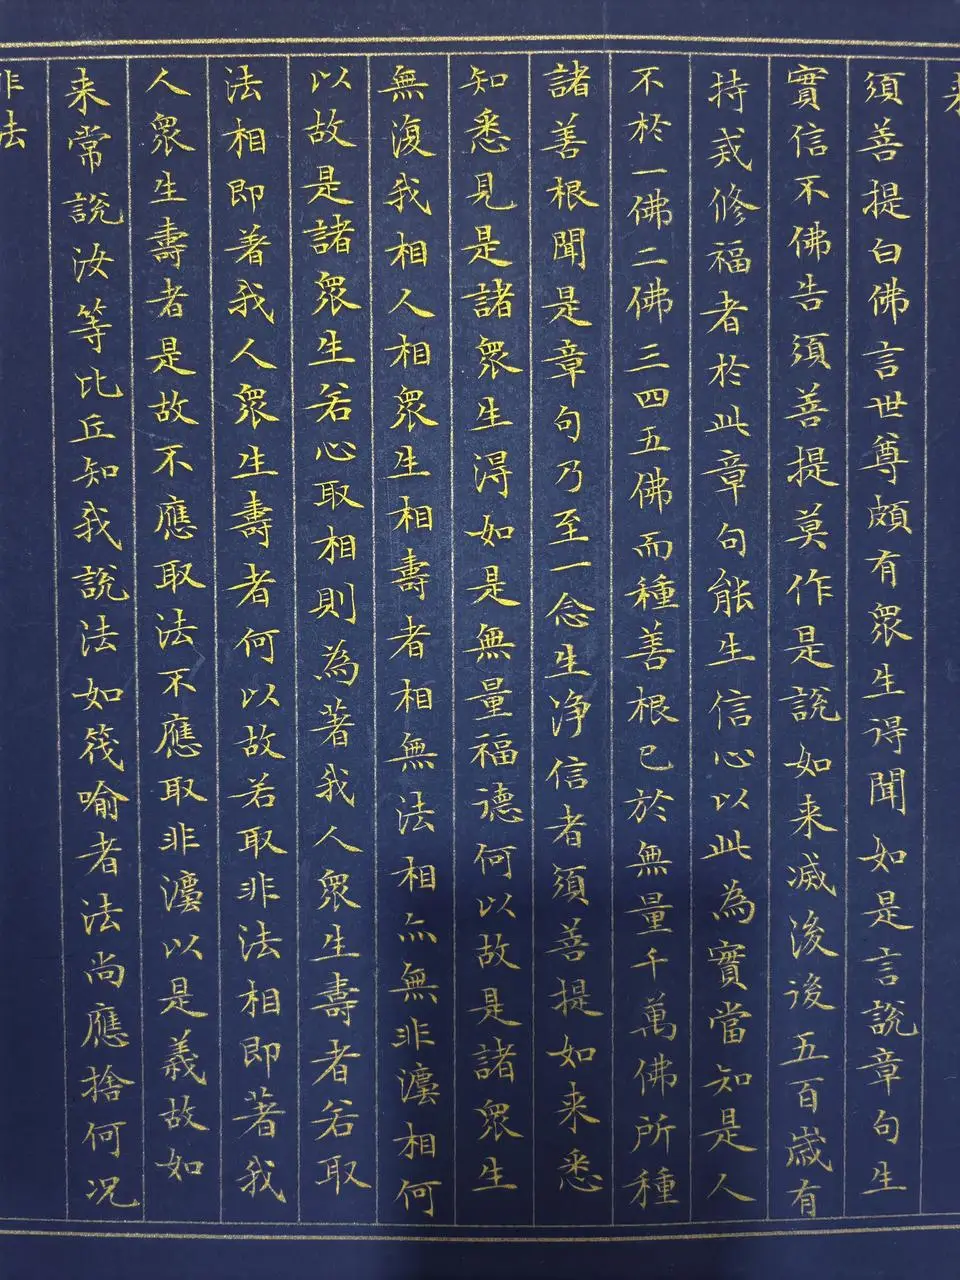 須菩提白佛言世尊頗有眾生得聞如是言說章句生
實信不佛告須菩提莫作是說如来滅後後五百歲有
持戒修福者於此章句能生信心以此為實當知是人
不於一佛二佛三四五佛而種善根已於無量千萬佛所種
諸善根聞是章句乃至一念生净信者須菩提如来悉
知悉見是諸眾生得如是無量福德何以故是諸眾生
無復我相人相眾生相壽者相無法相亦無非灋相何
以故是諸眾生若心取相則為著我人眾生壽者若取
法相即著我人眾生壽者何以故若取非法相即著我
人眾生壽者是故不應取法不應取非灋以是義故如
来常說汝等比丘知我說法如筏喻者法尚應捨何况
非法